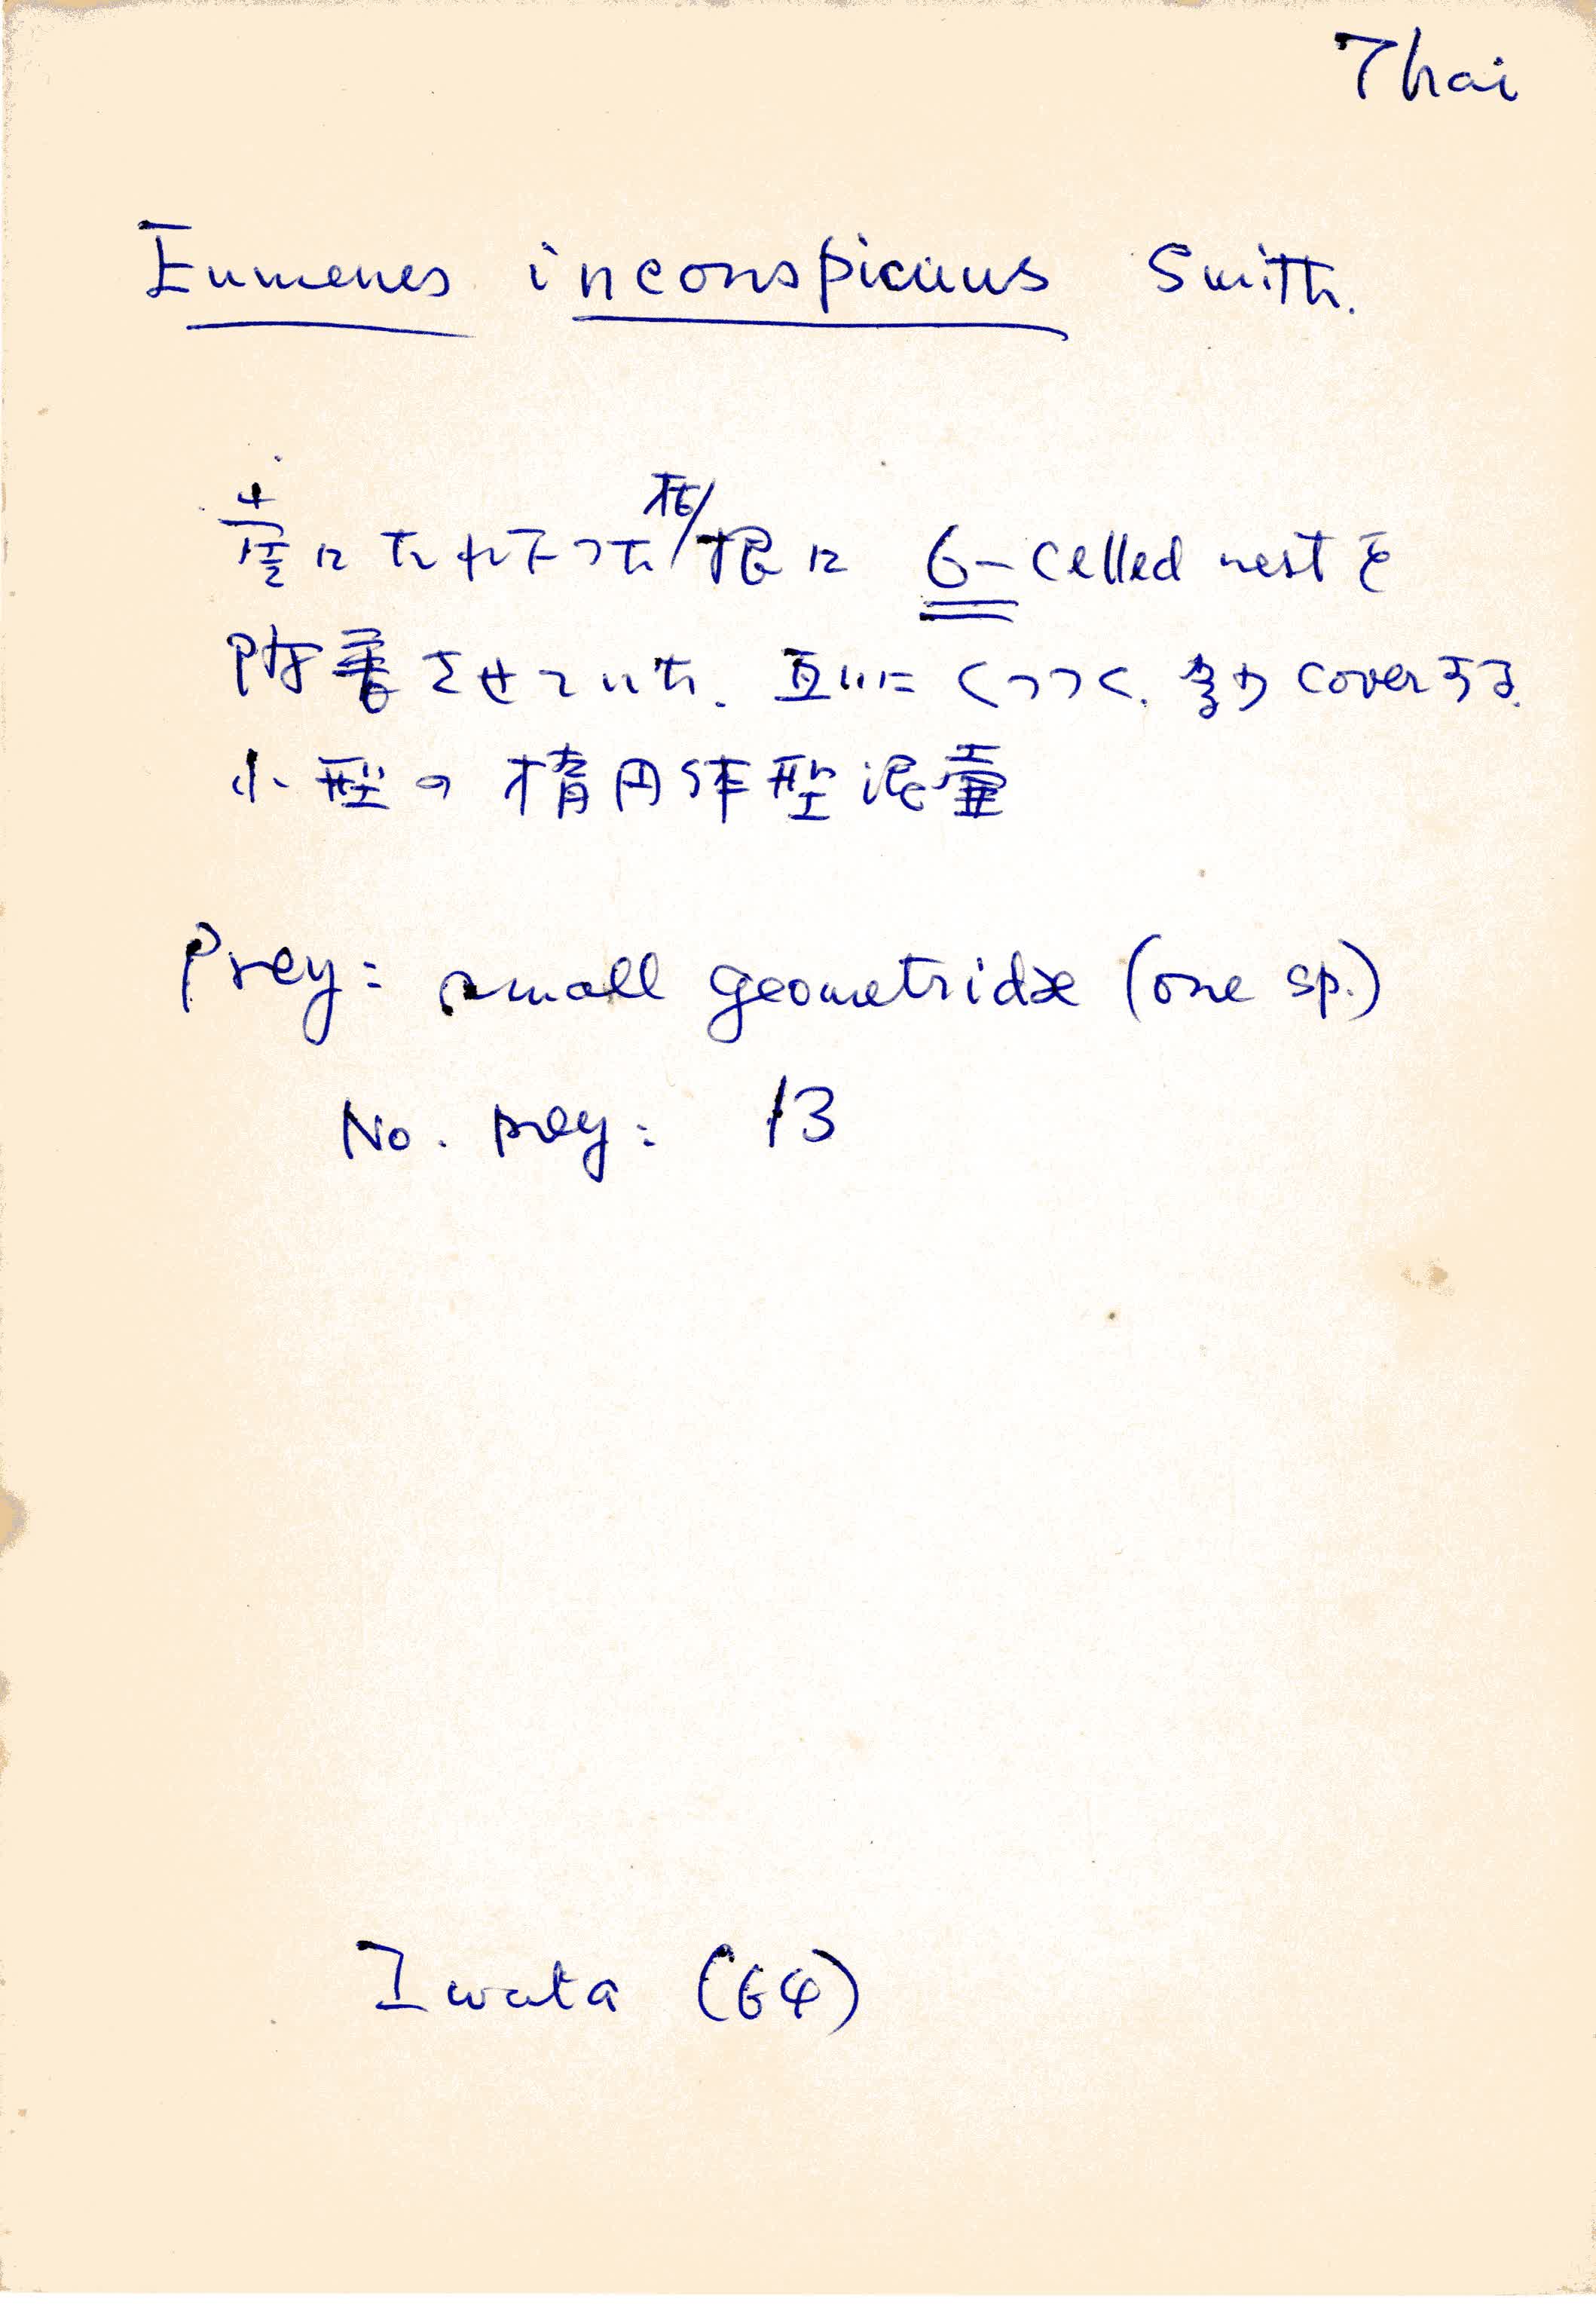 Thai
Eumenes inconspicuus Smith.
崖にたれ下った植/根に 6-celled nestを
附着させていた. 互いにくっつく. 多少coverする.
小型の楕円体型泥壷
Prey: small geometridae (one sp.)
No. prey: 13
Iwata (64)